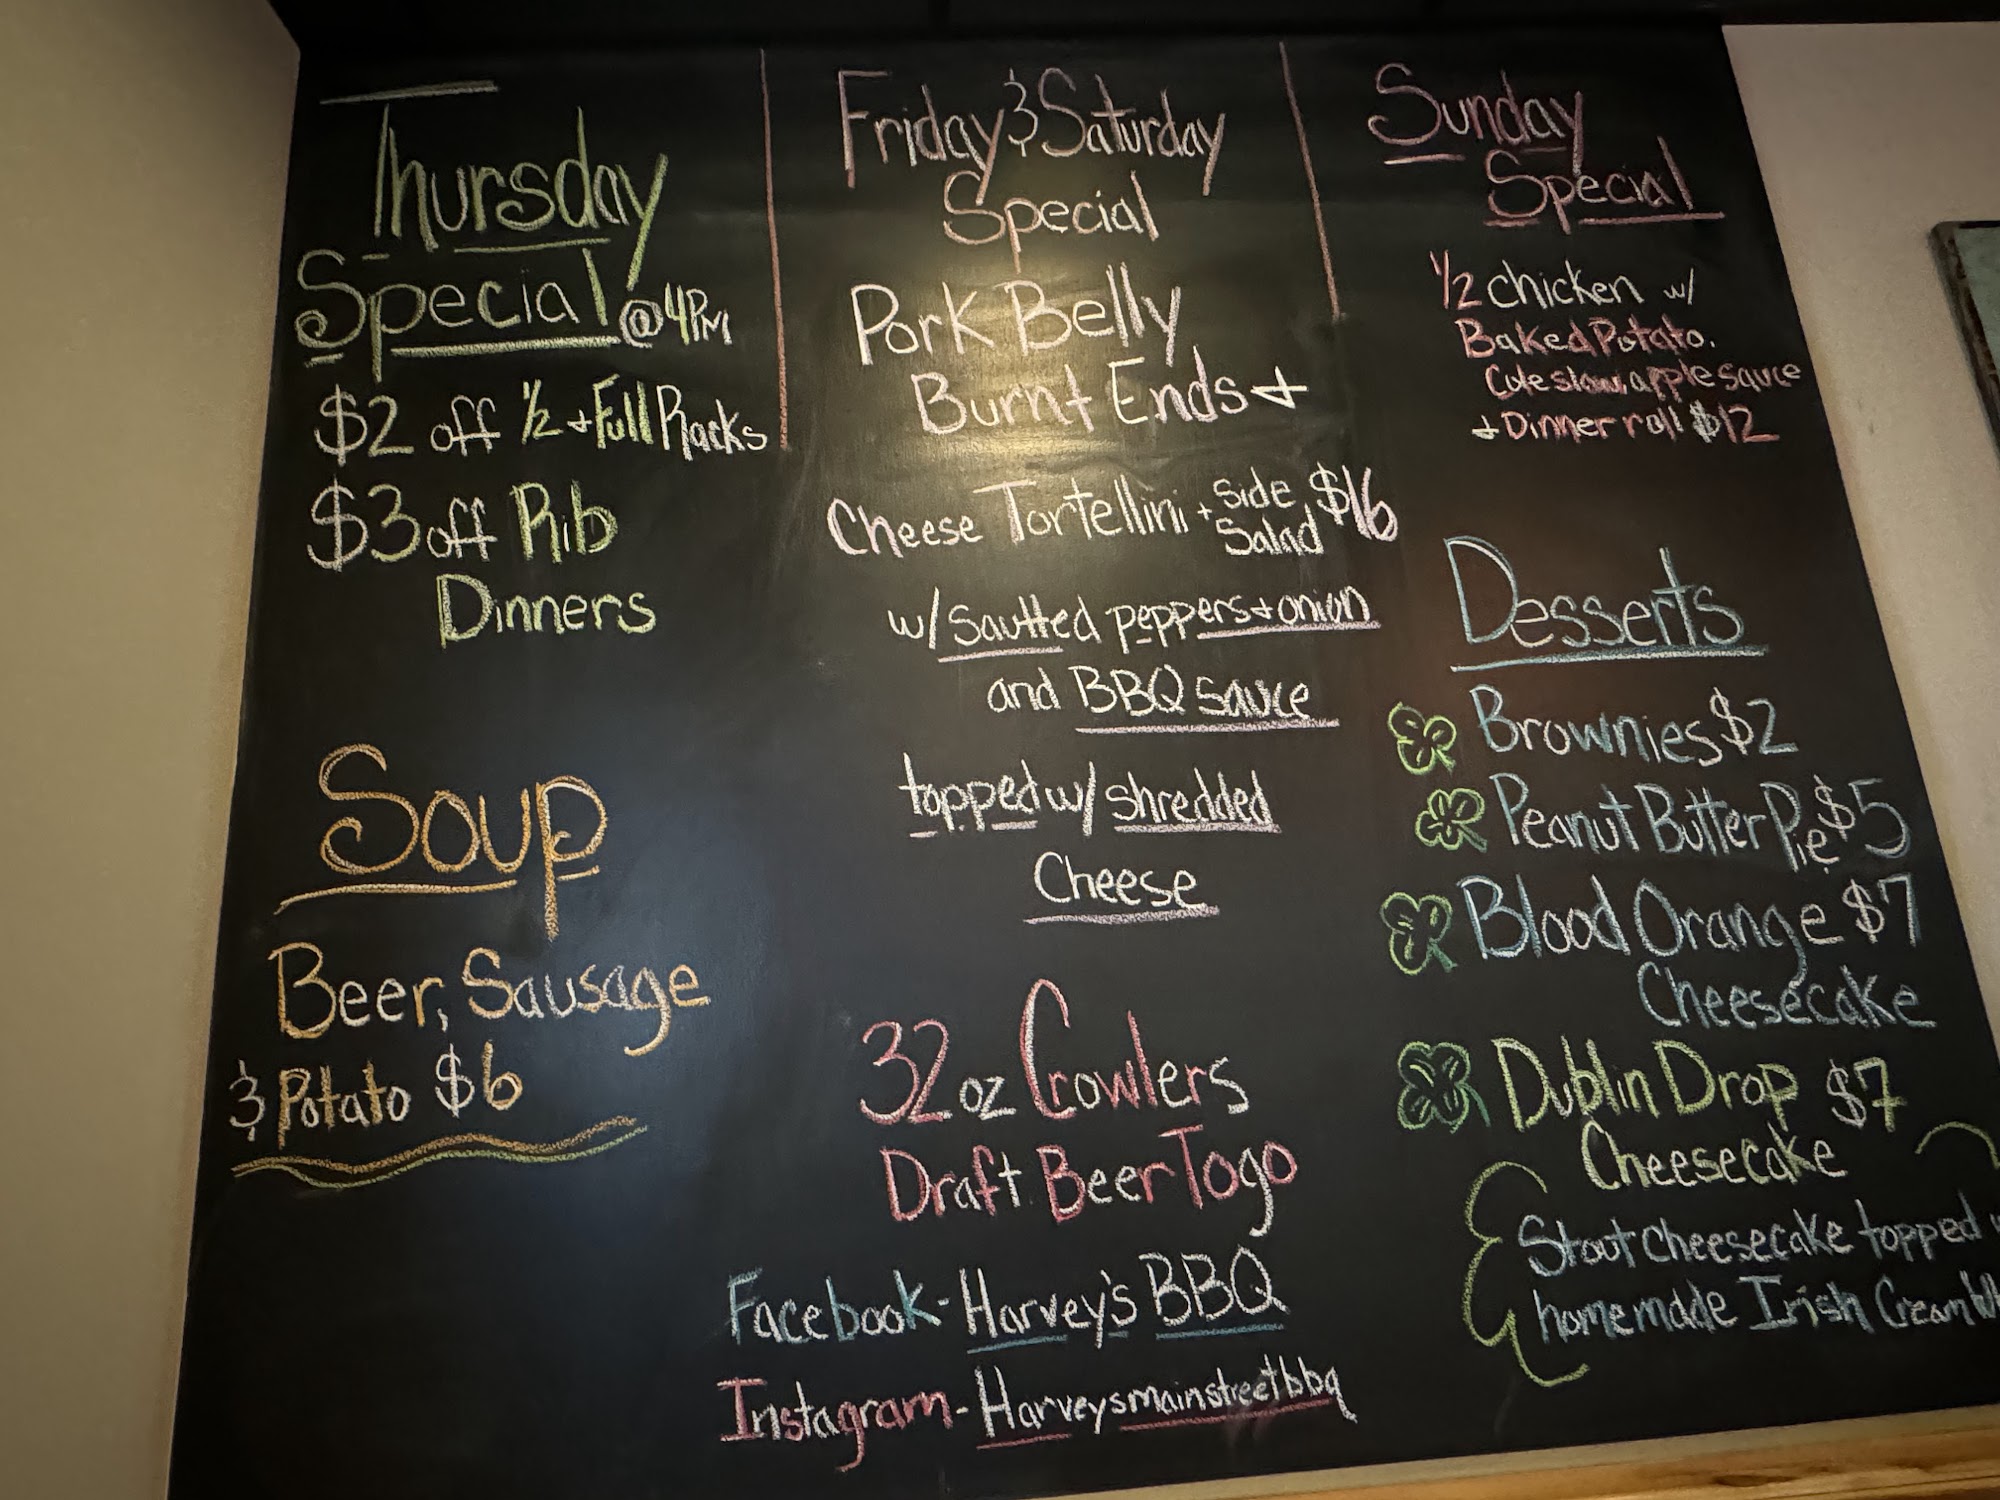 Thursday
Special @ 4PM
$2 off 1/2 + Full Racks
$3 off Rib
Dinners
Soup
Beer, Sausage
& Potato $6
Friday & Saturday
Special
Pork Belly
Burnt Ends +
Cheese Tortellini + Side Salad $16
w/ Sautted peppers + onion
and BBQ sauce
topped w/ shredded
Cheese
32 oz Crowlers
Draft Beer Togo
Facebook - Harvey's BBQ
Instagram - Harveysmainstreetbbq
Sunday
Special
1/2 chicken w/
Baked Potato.
Coleslaw, apple sauce
+ Dinner roll $12
Desserts
Brownies $2
Peanut Butter Pie $5
Blood Orange $7
Cheesecake
Dublin Drop $7
Cheesecake
Stout cheesecake topped
homemade Irish Cream